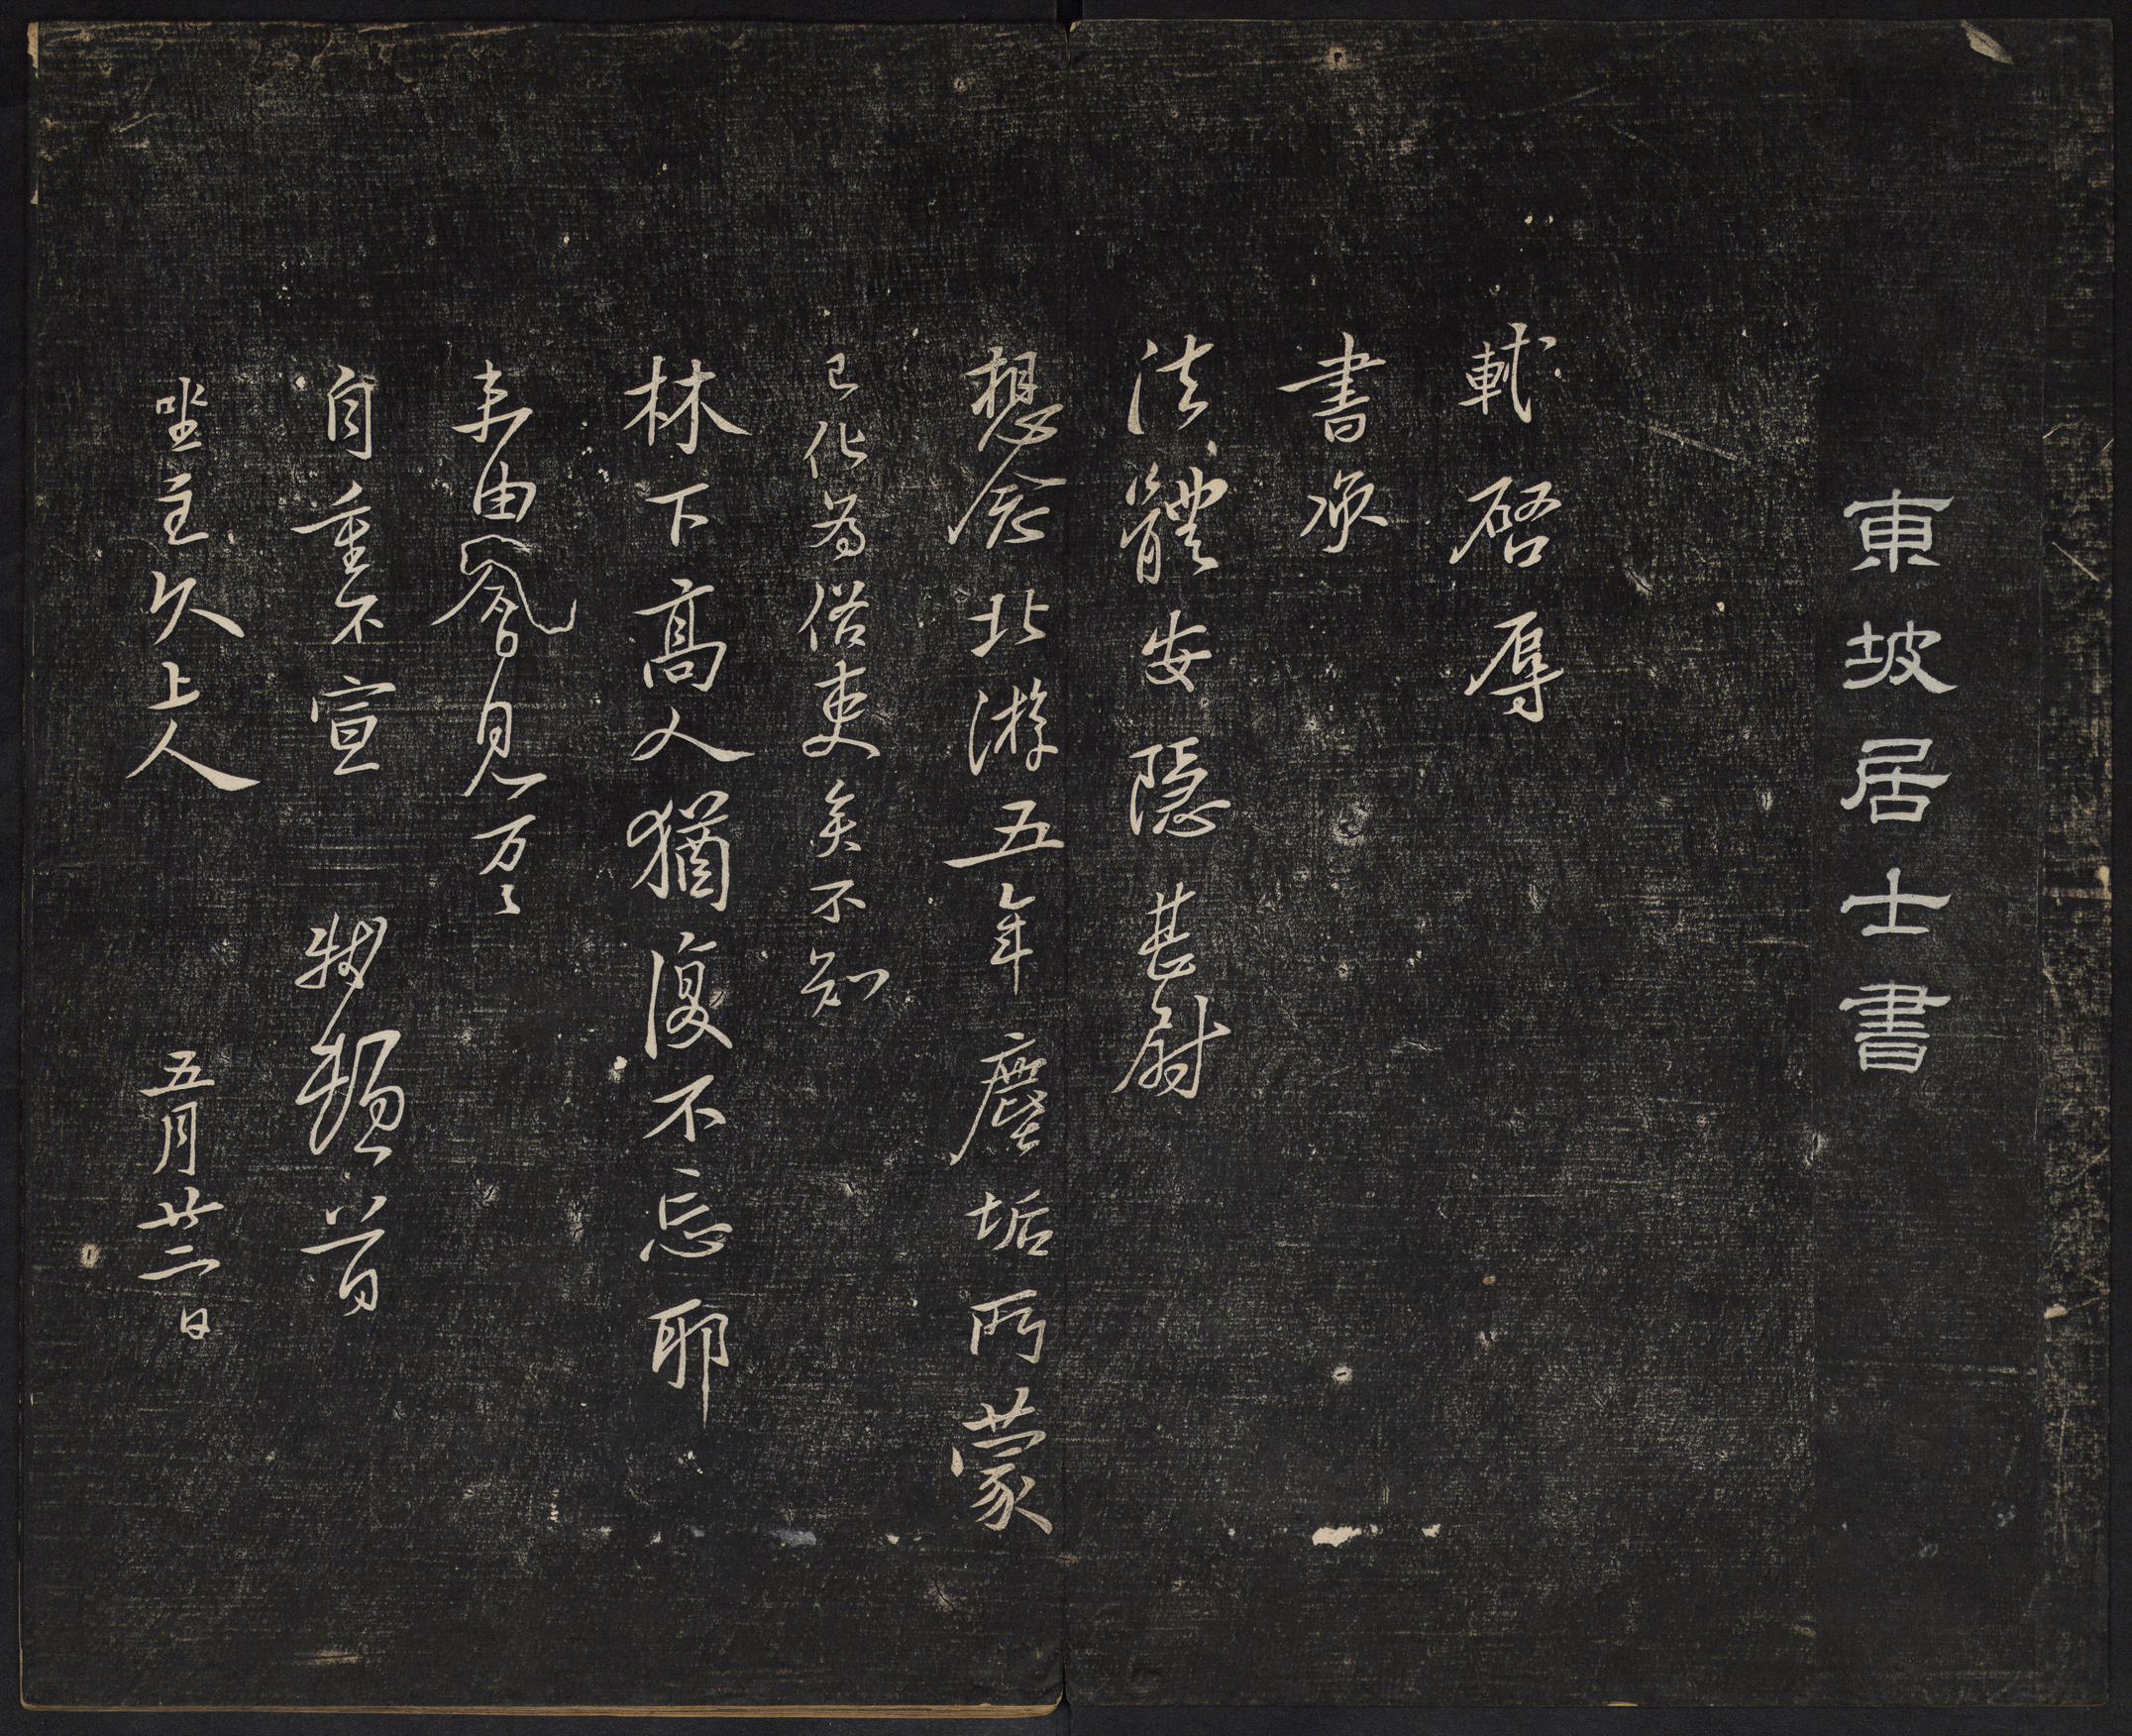 東坡居士書
軾啓辱
書承
法體安隱甚尉
想念北游五年塵垢所蒙
已化為俗吏矣不知
林下高人猶復不忘耶
未由會見万〻
自重不宣　軾頓首
坐主久上人　五月廿二日